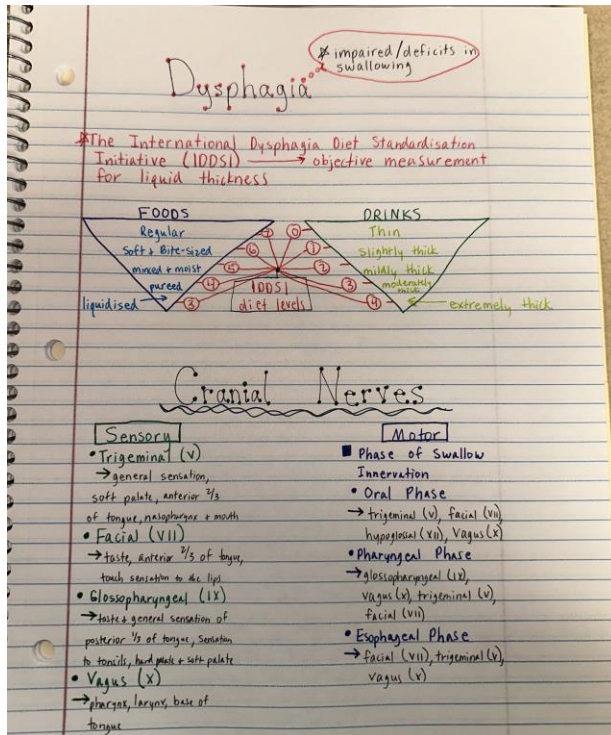 * impaired/deficits in
swallowing
Dysphagia
*The International Dysphagia Diet Standardisation
Initiative (IDDSI) → objective measurement
for liquid thickness
FOODS
Regular
Soft + Bite-sized
minced + moist
pureed
liquidised
7
6
5
4
3
IDDSI
diet levels
0
1
2
3
4
DRINKS
Thin
slightly thick
mildly thick
moderately
thick
extremely thick
Cranial Nerves
Sensory
• Trigeminal (V)
→ general sensation,
soft palate, anterior 2/3
of tongue, nasopharynx + mouth
• Facial (VII)
→ taste, anterior 2/3 of tongue,
touch sensation to the lips
• Glossopharyngeal (IX)
→ taste + general sensation of
posterior 1/3 of tongue, sensation
to tonsils, hard palate + soft palate
• Vagus (X)
→ pharynx, larynx, base of
tongue
Motor
■ Phase of Swallow
Innervation
• Oral Phase
→ trigeminal (V), facial (VII),
hypoglossal (XII), Vagus (X)
• Pharyngeal Phase
→ glossopharyngeal (IX),
vagus (X), trigeminal (V),
facial (VII)
• Esophageal Phase
→ facial (VII), trigeminal (V),
vagus (X)